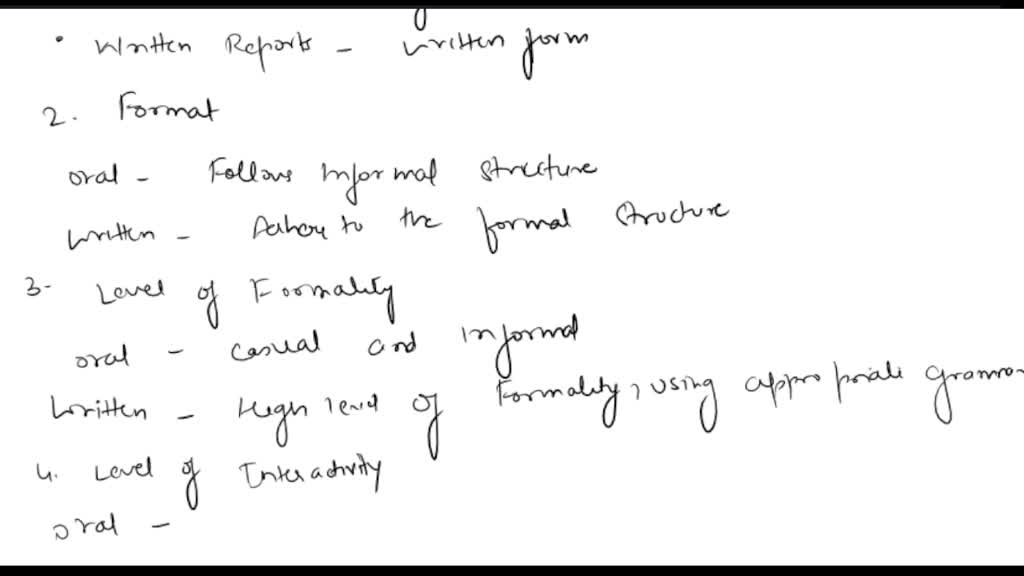 • Written Reports - written form
2. Format
oral - Follows Informal structure
written - Adhere to the formal structure
3- Level of Formality
oral - casual and informal
Written - High level of Formality, using appropriate gramma
4. Level of Interactivity
oral -